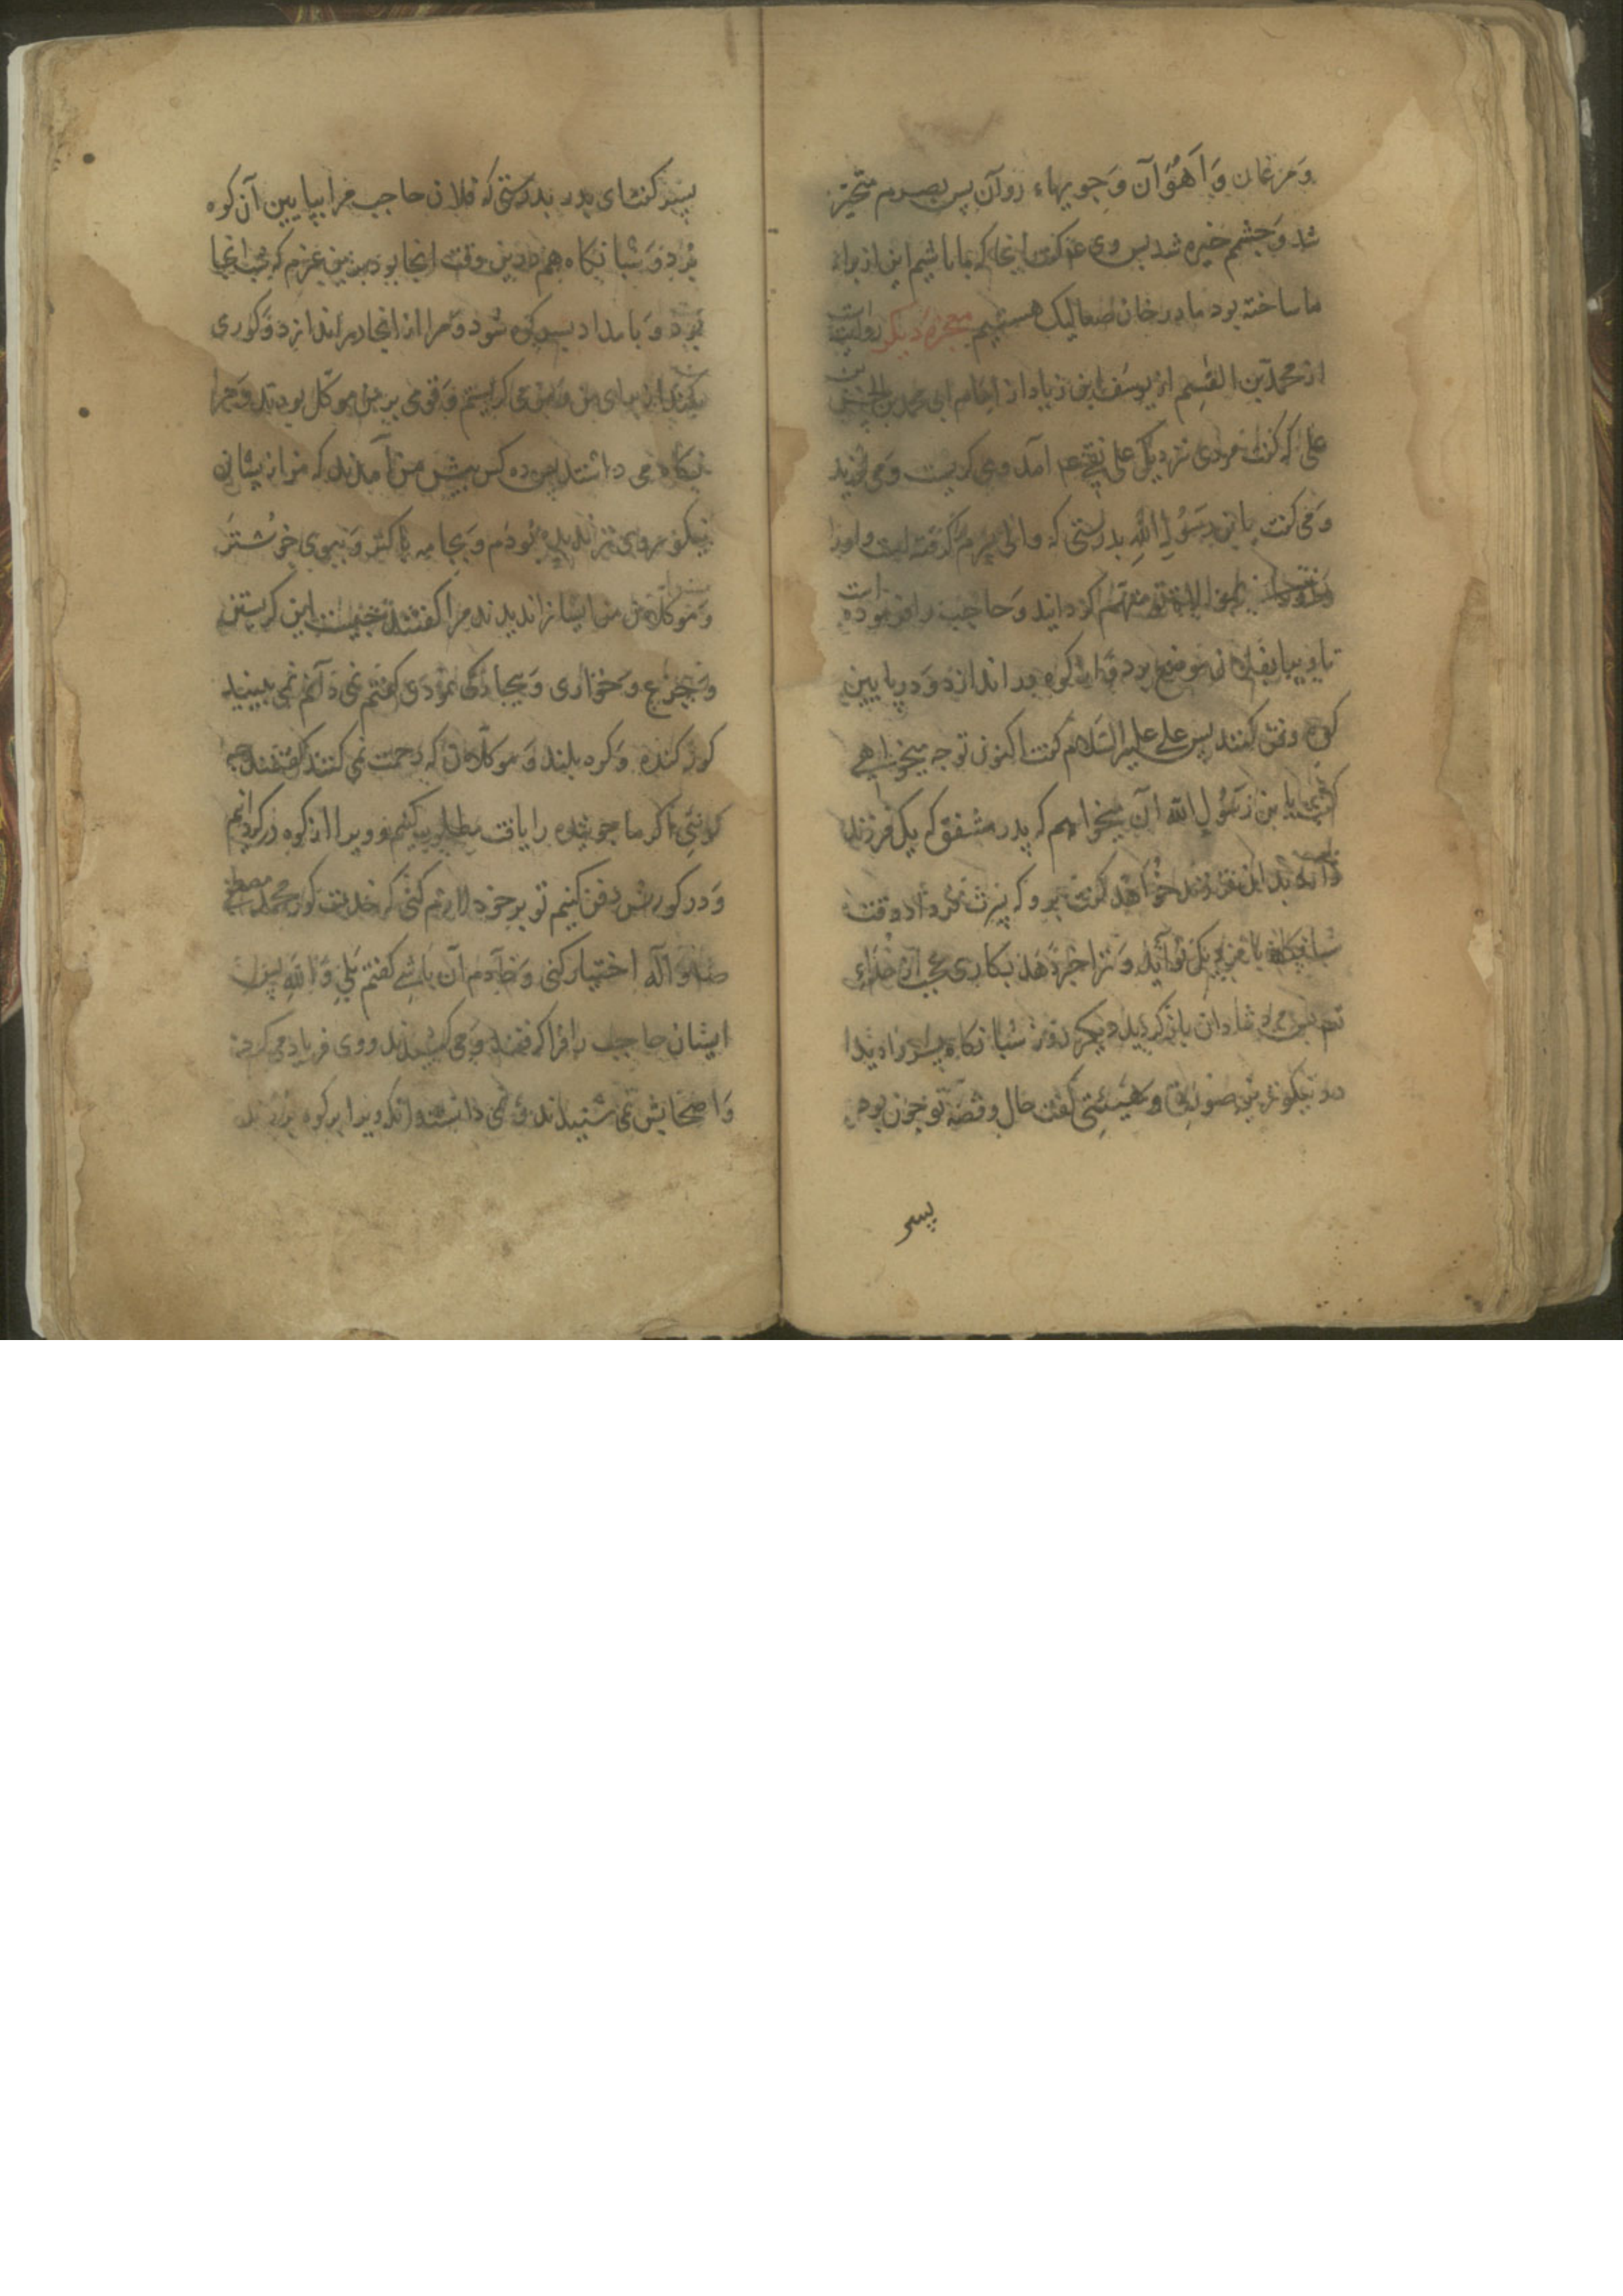 و مرغان وَ آهُوَان وَ جویهاء روان پس بصرم متحیّر
شد وَ چشمم خیره شد پس وی عم گفت اینجا که ما باشیم این از براء
ما ساخته بود ما در خان صعالیک هستیم معجزه دیگر روایت
از محمد بن القسم از یوسف ابن زیاد از امام ابی محمد بن الحسن بن
علی که گفت مردی نزدیک علی نقی عم آمد و می کریست و می لرزید
وَ می گفت یا بن رَسُولِ اللهِ بدرستی که والی پسرم گرفته است و او را
متهم گردانید وَ حاجب را فرموده است
تا ویرا بفلان موضع برد وَ از کوه در اندازد وَ در پایین
کوه دفن کنند پس علی علیه السّلام گفت اکنون تو چه میخواهی
گفت یا بن رَسُولِ الله آن میخواهم که پدر مشفق که یک فرزند
دارد برای فرزند خواهد گفت برو که پسرت فردا وقت
شبانگاه با نزدیک تو آید وَ ترا خبر دهد بکاری عجب از جداء
پس مرد شادان باز گردید دیگر روز شبانگاه پسر را دید
در نیکوترین صورتی وَ هَیئتی گفت حال و قصّه تو چون بود
پسر
پسر گفت ای پدر بدرستی که فلان حاجب مرا بپایین آن کوه
بُرد وَ شبانگاه هم درین وقت اینجا بود بدین عزم که شب اینجا
بَرَد وَ بامداد بسر کوه شود وَ مرا از آنجا در اندازد وَ کوری
بکنند از برای من وَ من می کریستم وَ قومی بر من موکّل بودند وَ مرا
نگاه می داشتند پس ده کس پیش من آمدند که من از یشان
نیکو روی تر ندیده بودم وَ بجامه پاکتر وَ ببوی خوشتر
وَ موکّلان من ایشانرا ندیدند مرا گفتند چیست این کریستن
وَ جزع وَ خواری وَ بیچارگی نمودن گفتم نمی بینید
کور کنده وَ کوه بلند وَ موکّلان که رحمت نمی کنند گفتند چه
گوئی اگر ما جوینده را یافت مطلوب کنیم و ویرا از کوه در گردانیم
وَ در کورش دفن کنیم تو بر خود لازم کنی که خدمت کور محمد مصطفی
صلی و آله اختیار کنی وَ خادم آن باشی گفتم بلی وَ اللهِ پس
ایشان حاجب را فرا گرفتند وَ می کشیدند و وی فریاد می کرد
وَ اصحابش نمی شنیدند وَ نمی دانستند تا آنکه ویرا بر کوه بردند